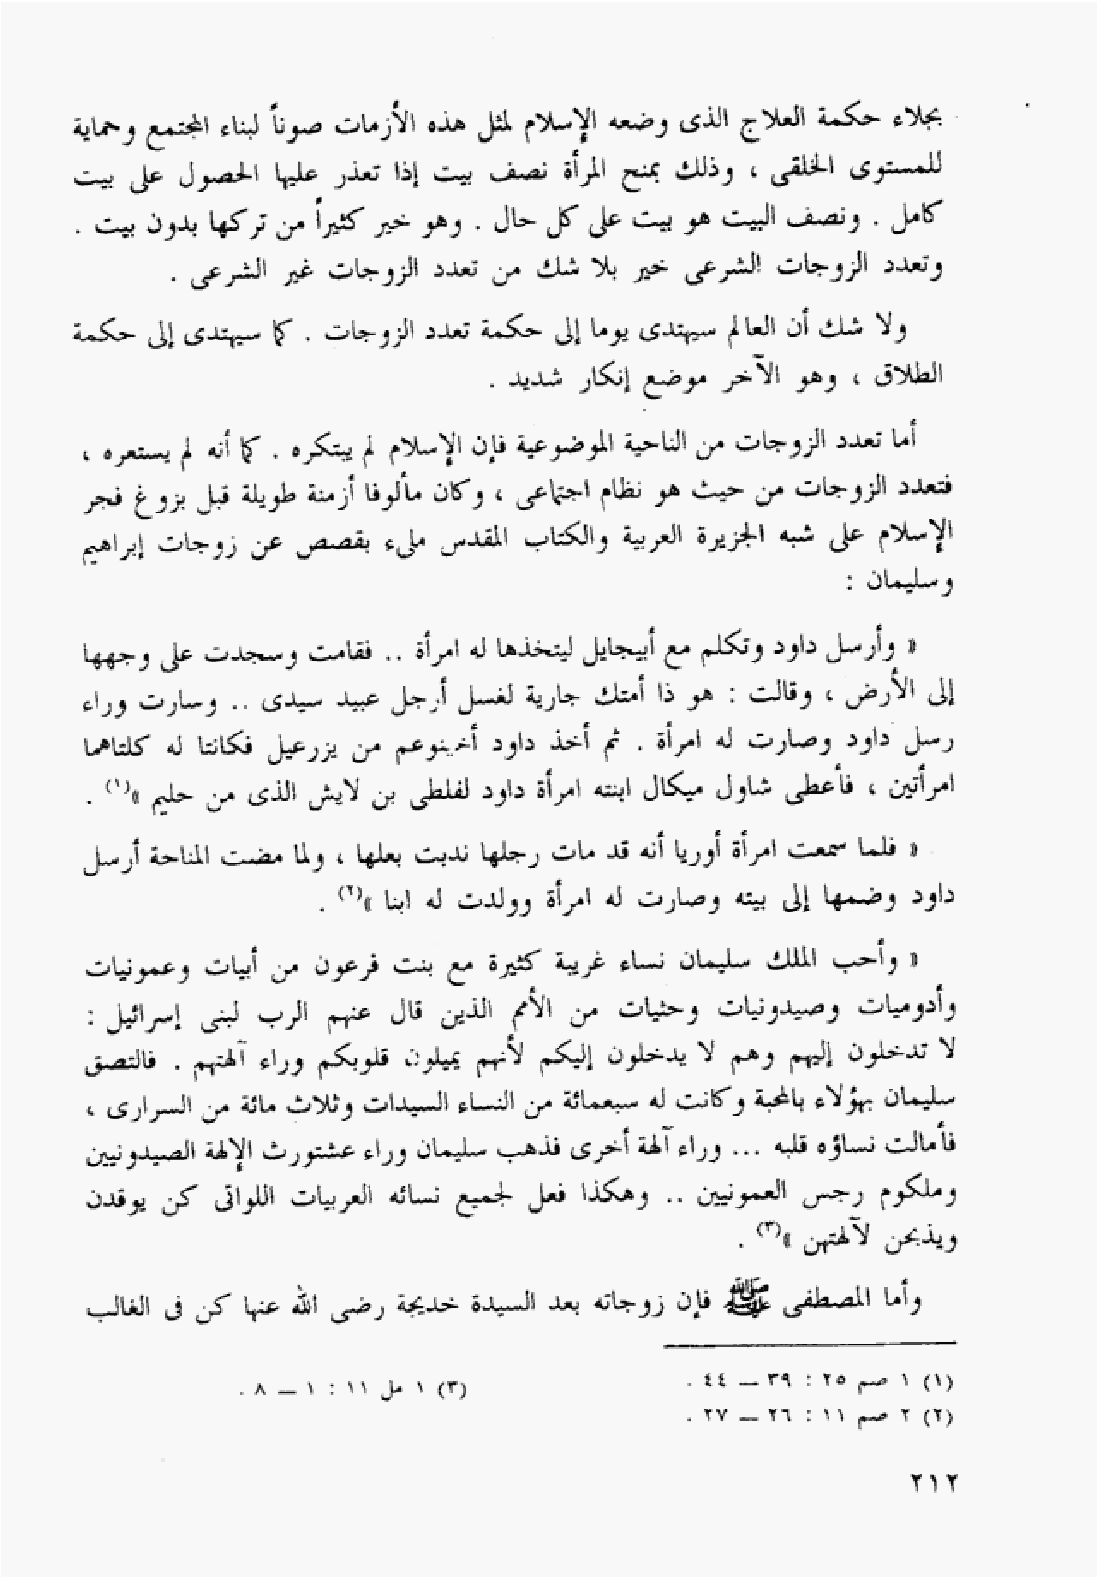 بجلاء حكمة العلاج الذى وضعه الإسلام لمثل هذه الأزمات صوناً لبناء المجتمع وحماية
للمستوى الخلقى ، وذلك بمنح المرأة نصف بيت إذا تعذر عليها الحصول على بيت
كامل . ونصف البيت هو بيت على كل حال . وهو خير كثيراً من تركها بدون بيت .
وتعدد الزوجات الشرعى خير بلا شك من تعدد الزوجات غير الشرعى .
ولا شك أن العالم سيهتدى يوما إلى حكمة تعدد الزوجات . كما سيهتدى إلى حكمة
الطلاق ، وهو الآخر موضع إنكار شديد .
أما تعدد الزوجات من الناحية الموضوعية فإن الإسلام لم يبتكره . كما أنه لم يستعره ،
فتعدد الزوجات من حيث هو نظام اجتماعى ، وكان مألوفا أزمنة طويلة قبل بزوغ فجر
الإسلام على شبه الجزيرة العربية والكتاب المقدس ملىء بقصص عن زوجات إبراهيم
وسليمان :
« وأرسل داود وتكلم مع أبيجايل ليتخذها له امرأة .. فقامت وسجدت على وجهها
إلى الأرض ، وقالت : هو ذا أمتك جارية لغسل أرجل عبيد سيدى .. وسارت وراء
رسل داود وصارت له امرأة . ثم أخذ داود أخينوعم من يزرعيل فكانتا له كلتاهما
امرأتين ، فأعطى شاول ميكال ابنته امرأة داود لفلطى بن لايش الذى من حليم »(١) .
« فلما سمعت امرأة أوريا أنه قد مات رجلها ندبت بعلها ، ولما مضت المناحة أرسل
داود وضمها إلى بيته وصارت له امرأة وولدت له ابنا »(٢) .
« وأحب الملك سليمان نساء غريبة كثيرة مع بنت فرعون من أبيات وعمونيات
وأدوميات وصيدونيات وحثيات من الأمم الذين قال عنهم الرب لبنى إسرائيل :
لا تدخلون إليهم وهم لا يدخلون إليكم لأنهم يميلون قلوبكم وراء آلهتهم . فالتصق
سليمان بهؤلاء بالمحبة وكانت له سبعمائة من النساء السيدات وثلاث مائة من السرارى ،
فأمالت نساؤه قلبه ... وراء آلهة أخرى فذهب سليمان وراء عشتورث الإلهة الصيدونيين
وملكوم رجس العمونيين .. وهكذا فعل لجميع نسائه العربيات اللواتى كن يوقدن
ويذبحن لآلهتهن »(٣) .
وأما المصطفى ﷺ فإن زوجاته بعد السيدة خديجة رضى الله عنها كن فى الغالب
(١) ١ صم ٢٥ : ٣٩ — ٤٤ .
(٢) ٢ صم ١١ : ٢٦ — ٢٧ .
(٣) ١ مل ١١ : ١ — ٨ .
٢١٢